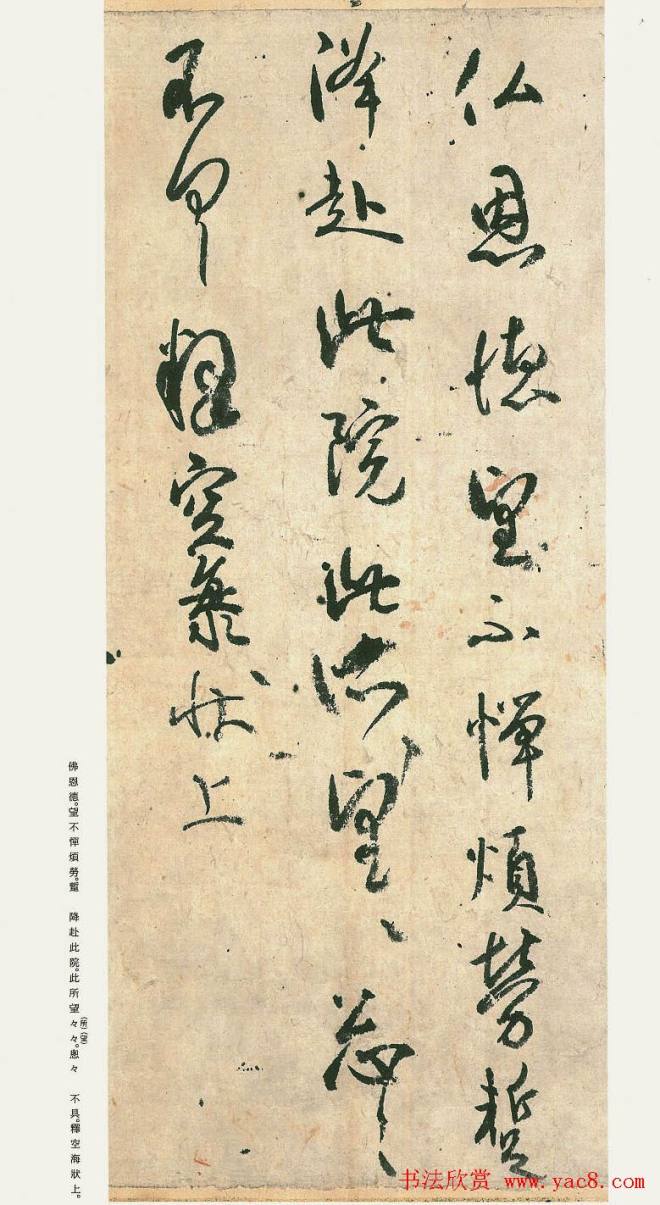 仏恩徳望不憚煩勞蹔
降赴此院此所望々忩々
不具釋空海状上
佛恩德。望不憚煩勞。蹔　降赴此院。此所望々々。忩々　不具。釋空海狀上。
(所)(望)
书法欣赏 www.yac8.com